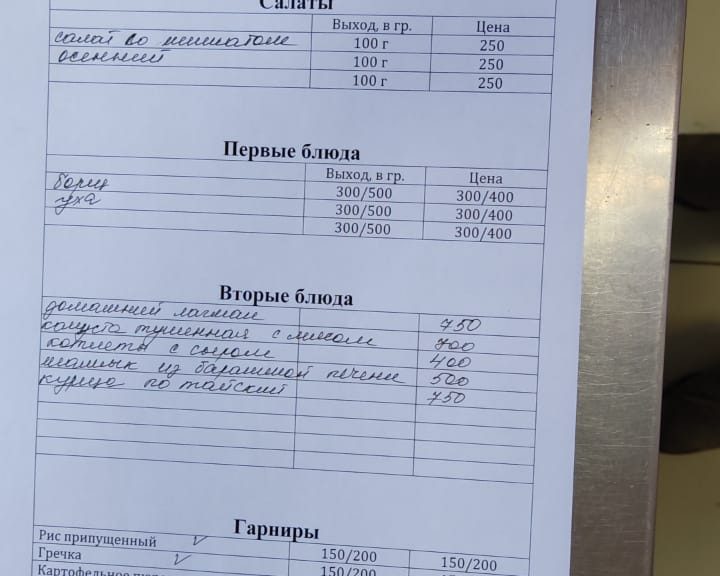 Салаты
Выход, в гр. Цена
салат со шпинатом 100 г 250
осенний 100 г 250
100 г 250
Первые блюда
Выход, в гр. Цена
борщ 300/500 300/400
уха 300/500 300/400
300/500 300/400
Вторые блюда
домашний лагман 750
капуста тушенная с мясом 700
котлеты с сыром 400
шашлык из бараньей печени 500
курица по тайский 750
Гарниры
Рис припущенный 150/200 150/200
Гречка 150/200
Картофельное